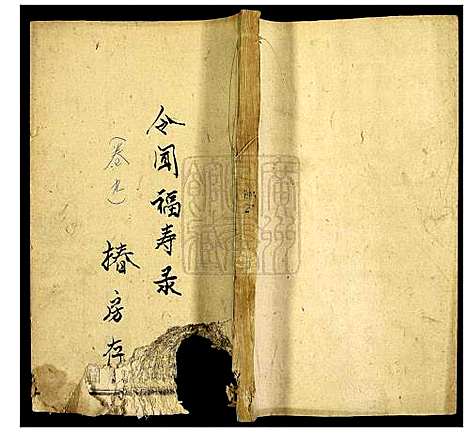 令闻福寿录
(卷九)
椿房存